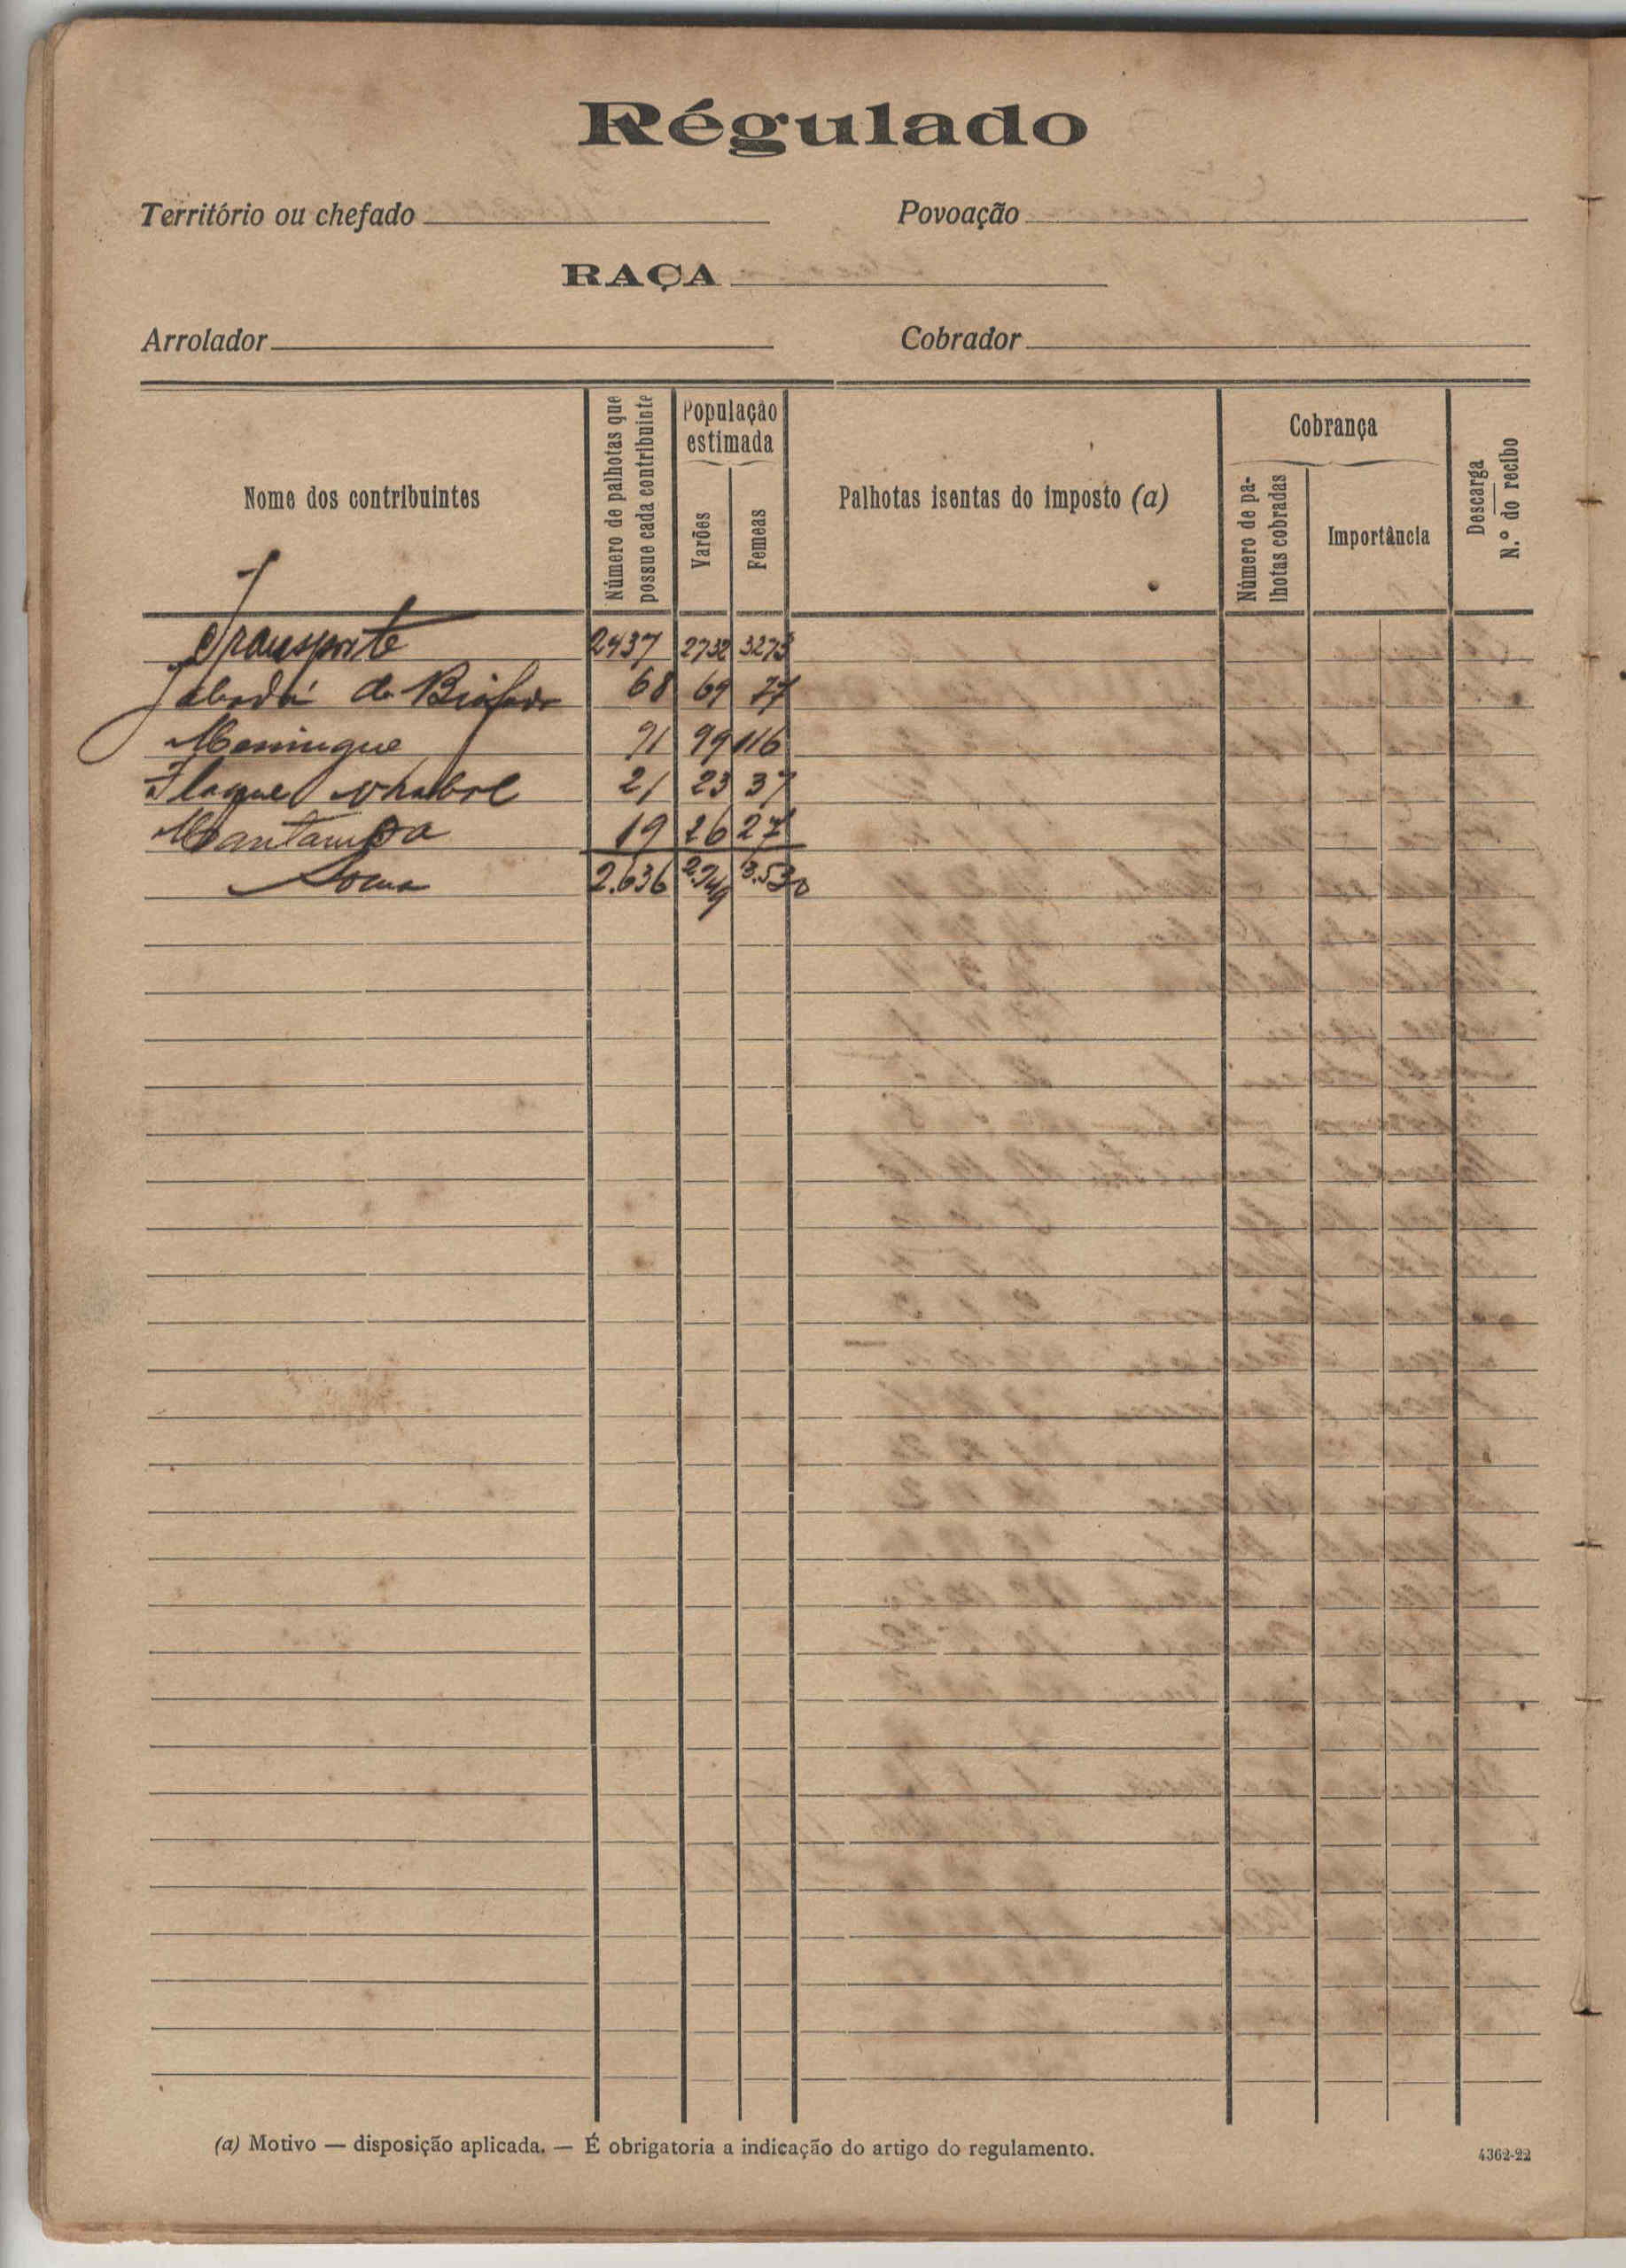 Régulado
Território ou chefado
Povoação
RAÇA
Arrolador
Cobrador
Nome dos contribuintes
Número de palhotas que possue cada contribuinte
População estimada
Varões
Femeas
Palhotas isentas do imposto (a)
Cobrança
Número de palhotas cobradas
Importância
Descarga
N.º do recibo
Transporte 2437 2732 3273
Jabadá de Biafada 68 69 77
Meningue 91 99 116
Flaque 21 23 37
19 26 27
Soma 2.636 2.949 3.530
(a) Motivo — disposição aplicada. — É obrigatoria a indicação do artigo do regulamento.
4362-22